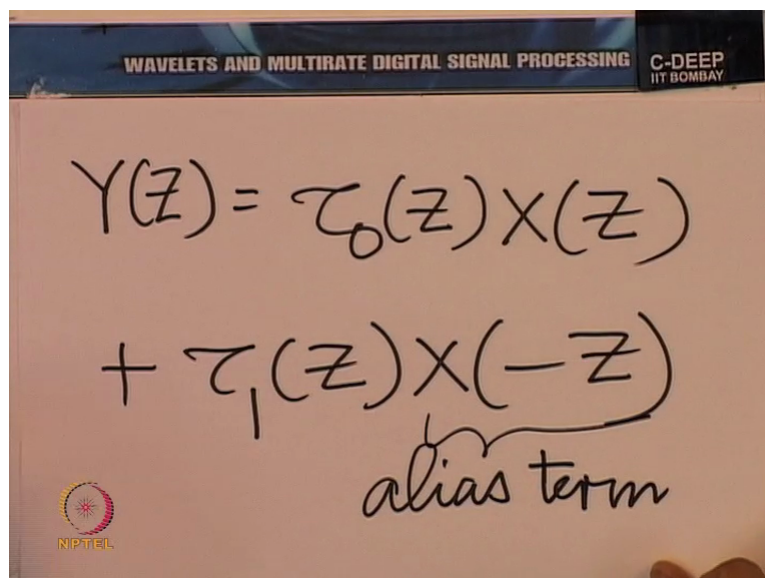 WAVELETS AND MULTIRATE DIGITAL SIGNAL PROCESSING
C-DEEP
IIT BOMBAY
Y(Z) = τ₀(Z) X(Z)
+ τ₁(Z) X(-Z)
alias term
NPTEL